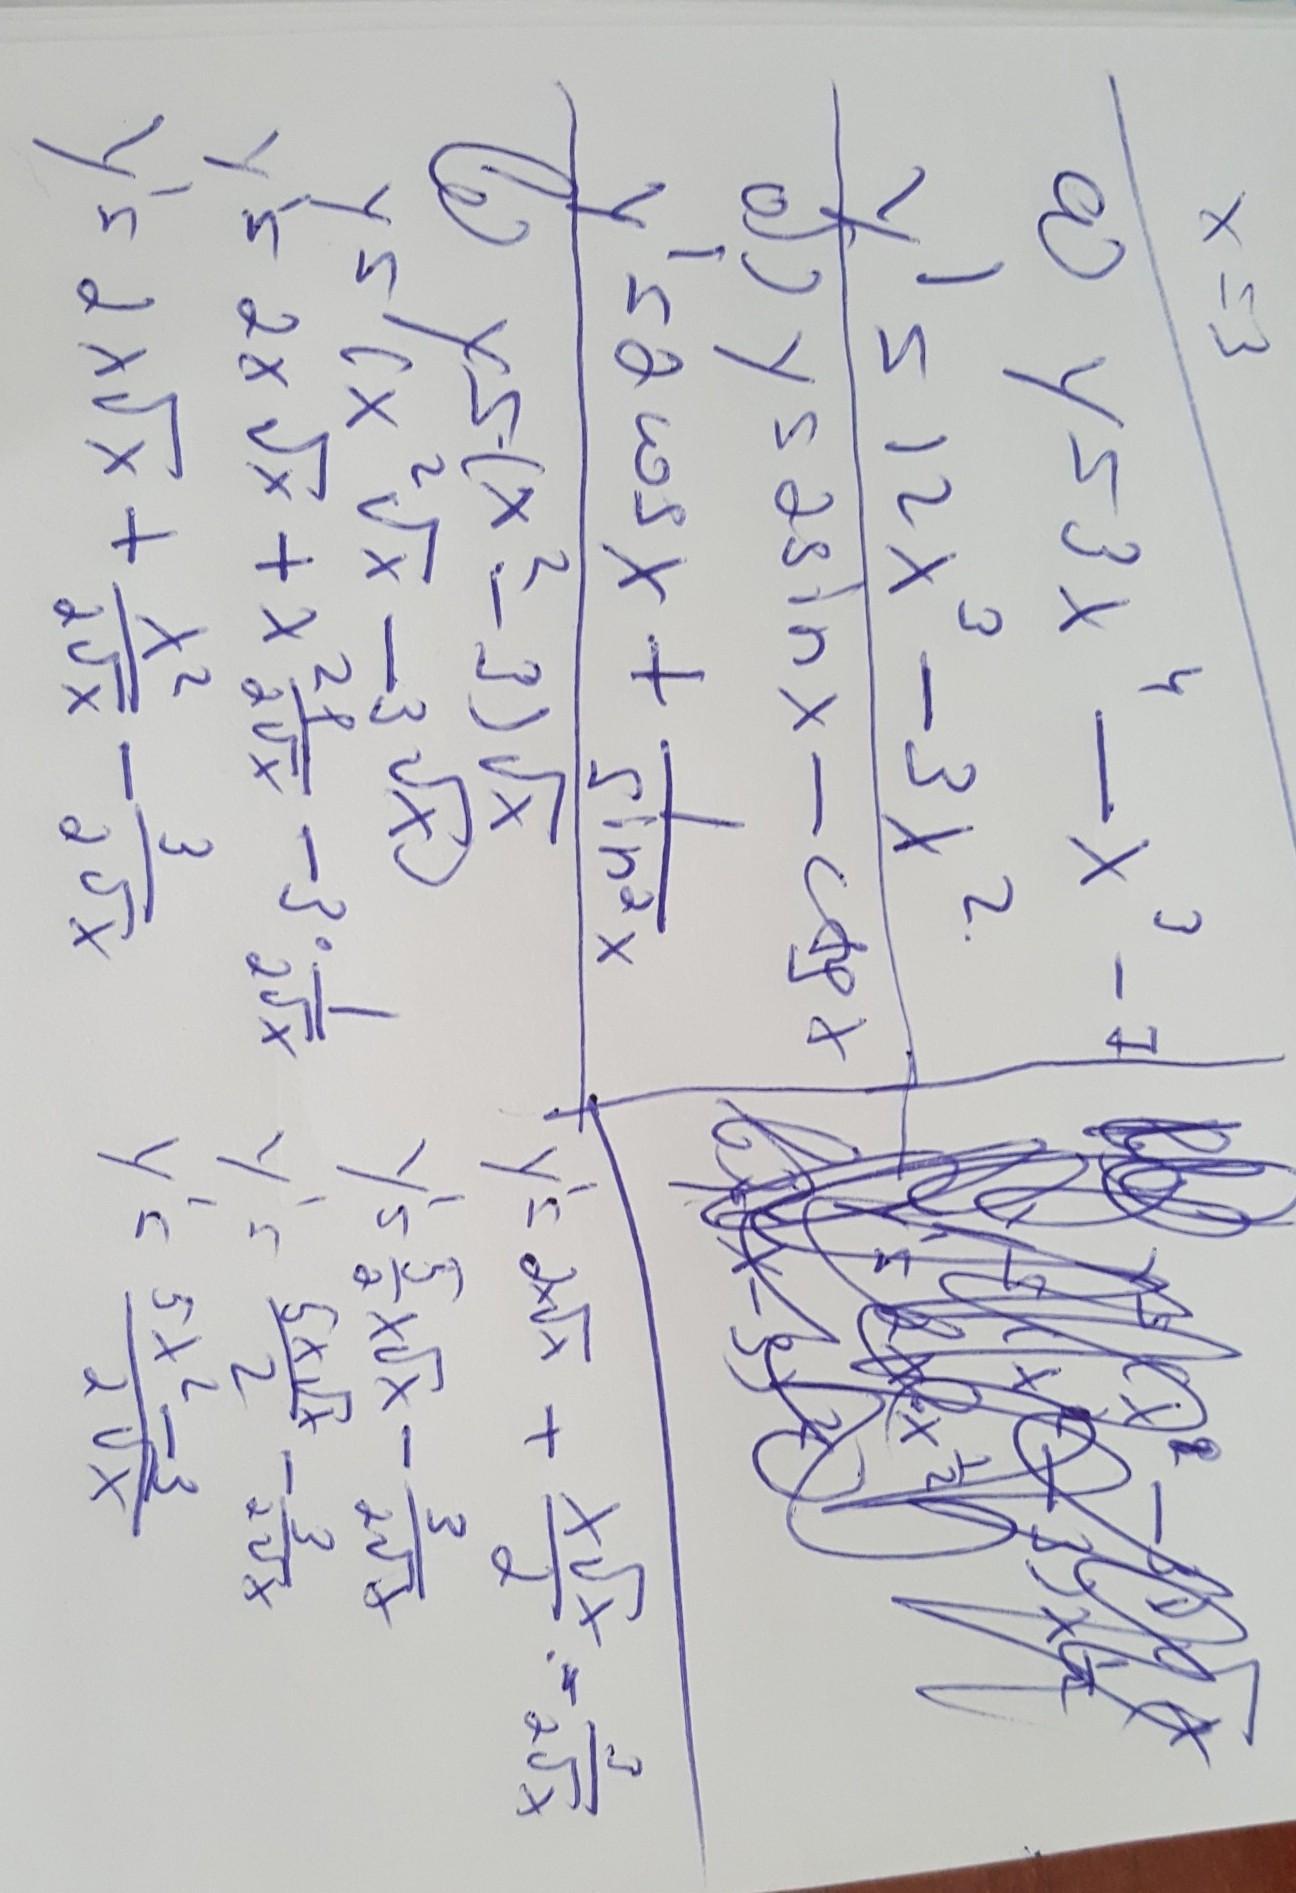 x = 3
a) y = 3x⁴ — x³ - 7
y' = 12x³ — 3x².
a) y = 2sinx — ctgx
y' = 2cosx + 1/sin²x
y = (x² - 3)√x
y = (x²√x — 3√x)
y' = 2x√x + x² 1/2√x - 3 · 1/2√x
y' = 2x√x + x²/2√x - 3/2√x
y' = 2x√x + x√x/2 - 3/2√x
y' = 5/2 x√x - 3/2√x
y' = 5x√x/2 - 3/2√x
y' = 5x² - 3/2√x